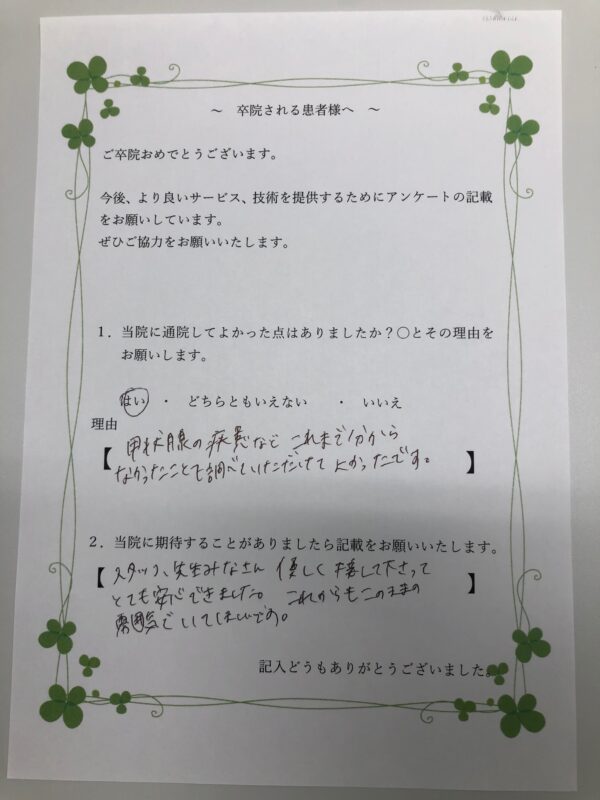 ～　卒院される患者様へ　～
ご卒院おめでとうございます。
今後、より良いサービス、技術を提供するためにアンケートの記載
をお願いしています。
ぜひご協力をお願いいたします。
１．当院に通院してよかった点はありましたか？〇とその理由を
お願いします。
はい　・　どちらともいえない　・　いいえ
理由
【甲状腺の疾患など これまで分から
なかったことも調べていただけて よかったです。】
２．当院に期待することがありましたら記載をお願いいたします。
【スタッフ、先生みなさん 優しく接して下さって
とても安心できました。 これからもこのままの
雰囲気でいてほしいです。】
記入どうもありがとうございました。